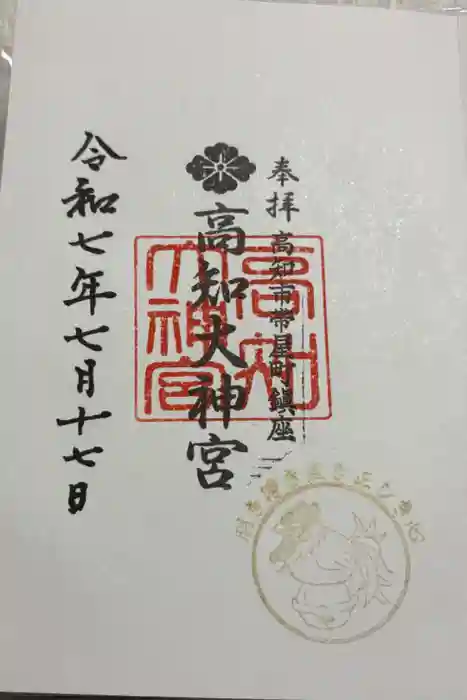 奉拝
高知市帯屋町鎮座
高知大神宮
高知大神宮
令和七年七月十七日